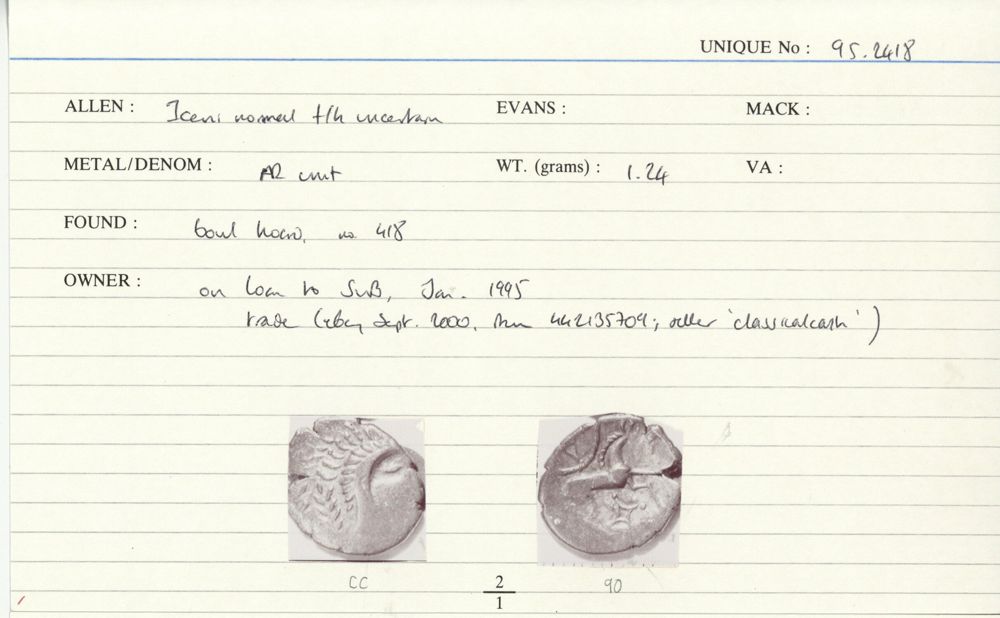 UNIQUE No : 95.2418
ALLEN : Iceni normal f/h uncertain EVANS : MACK :
METAL/DENOM : AR unit WT. (grams) : 1.24 VA :
FOUND : bowl hoard, no. 418
OWNER : on loan to SWB, Jan. 1995
trade (eBay Sept. 2000, item 442135709; seller 'classicalcash')
CC 2 90
1